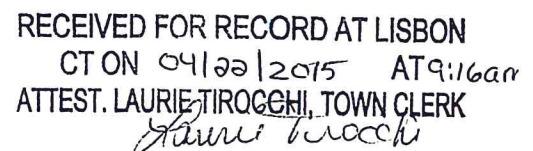 RECEIVED FOR RECORD AT LISBON
CT ON 04/22/2015 AT 9:16am
ATTEST. LAURIE TIROCCHI, TOWN CLERK
Laurie Tirocchi